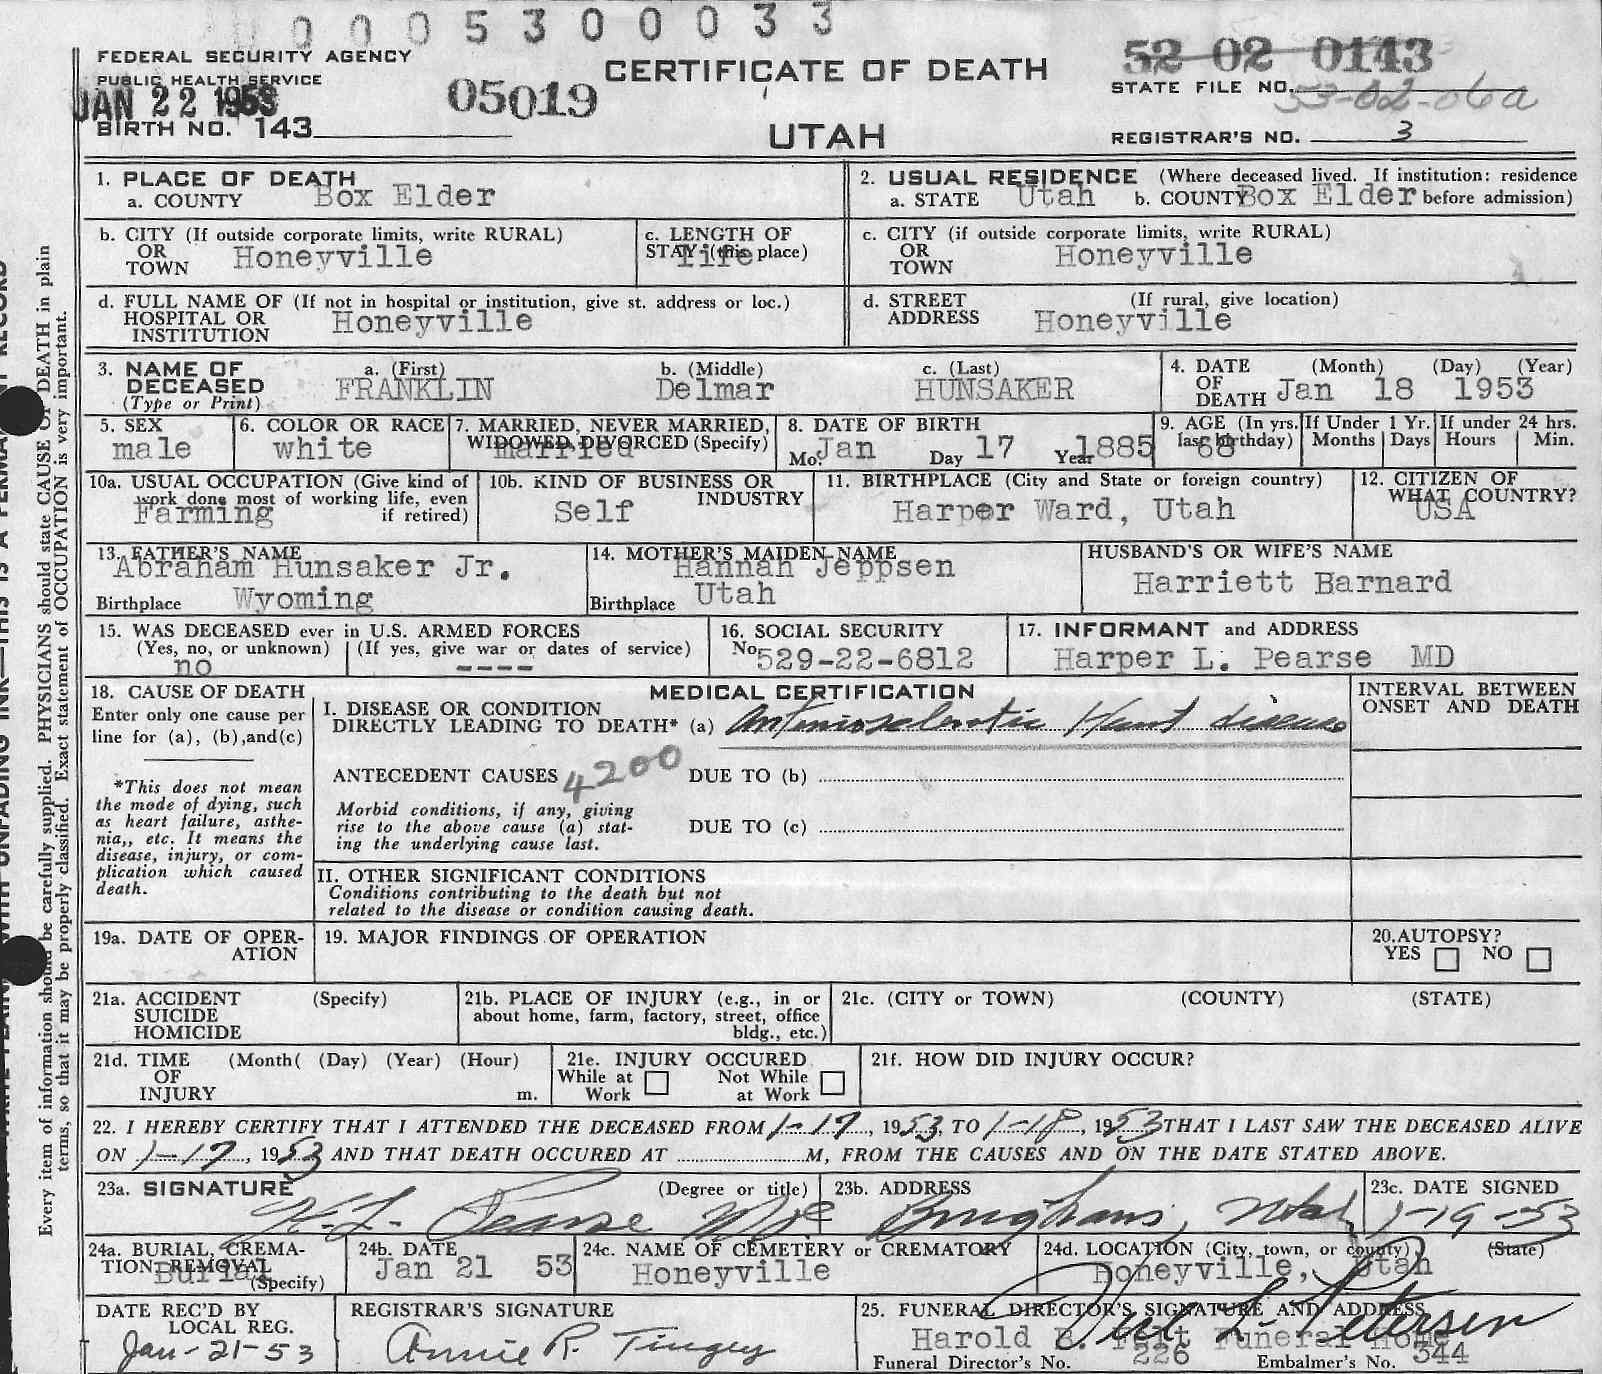 0 0 0 5 3 0 0 0 3 3
FEDERAL SECURITY AGENCY
PUBLIC HEALTH SERVICE
JAN 22 1953
BIRTH NO. 143
05019
CERTIFICATE OF DEATH
UTAH
52 02 0143
STATE FILE NO.
53-02-06a
REGISTRAR'S NO. 3
1. PLACE OF DEATH
a. COUNTY Box Elder
2. USUAL RESIDENCE (Where deceased lived. If institution: residence
a. STATE Utah b. COUNTY Box Elder before admission)
b. CITY (If outside corporate limits, write RURAL)
OR
TOWN Honeyville
c. LENGTH OF
STAY (this place) life
c. CITY (if outside corporate limits, write RURAL)
OR
TOWN Honeyville
d. FULL NAME OF (If not in hospital or institution, give st. address or loc.)
HOSPITAL OR
INSTITUTION Honeyville
d. STREET (If rural, give location)
ADDRESS Honeyville
3. NAME OF DECEASED (Type or Print)
a. (First) b. (Middle) c. (Last)
FRANKLIN Delmar HUNSAKER
4. DATE OF DEATH (Month) (Day) (Year)
Jan 18 1953
5. SEX
male
6. COLOR OR RACE
white
7. MARRIED, NEVER MARRIED,
WIDOWED, DIVORCED (Specify)
married
8. DATE OF BIRTH
Mo. Jan Day 17 Year 1885
9. AGE (In yrs. last birthday)
68
If Under 1 Yr.
Months Days
If under 24 hrs.
Hours Min.
10a. USUAL OCCUPATION (Give kind of
work done most of working life, even
if retired)
Farming
10b. KIND OF BUSINESS OR
INDUSTRY
Self
11. BIRTHPLACE (City and State or foreign country)
Harper Ward, Utah
12. CITIZEN OF
WHAT COUNTRY?
USA
13. FATHER'S NAME
Abraham Hunsaker Jr.
Birthplace Wyoming
14. MOTHER'S MAIDEN NAME
Hannah Jeppsen
Birthplace Utah
HUSBAND'S OR WIFE'S NAME
Harriett Barnard
15. WAS DECEASED ever in U.S. ARMED FORCES
(Yes, no, or unknown) (If yes, give war or dates of service)
no ----
16. SOCIAL SECURITY
No. 529-22-6812
17. INFORMANT and ADDRESS
Harper L. Pearse MD
18. CAUSE OF DEATH
Enter only one cause per
line for (a), (b),and(c)
*This does not mean
the mode of dying, such
as heart failure, asthe-
nia,, etc. It means the
disease, injury, or com-
plication which caused
death.
MEDICAL CERTIFICATION
I. DISEASE OR CONDITION
DIRECTLY LEADING TO DEATH* (a) Arteriosclerotic Heart disease
ANTECEDENT CAUSES 4200 DUE TO (b)
Morbid conditions, if any, giving
rise to the above cause (a) stat-
ing the underlying cause last.
DUE TO (c)
INTERVAL BETWEEN
ONSET AND DEATH
II. OTHER SIGNIFICANT CONDITIONS
Conditions contributing to the death but not
related to the disease or condition causing death.
19a. DATE OF OPER-
ATION
19. MAJOR FINDINGS OF OPERATION
20.AUTOPSY?
YES NO
21a. ACCIDENT (Specify)
SUICIDE
HOMICIDE
21b. PLACE OF INJURY (e.g., in or
about home, farm, factory, street, office
bldg., etc.)
21c. (CITY or TOWN) (COUNTY) (STATE)
21d. TIME (Month( (Day) (Year) (Hour)
OF
INJURY m.
21e. INJURY OCCURED
While at Work Not While at Work
21f. HOW DID INJURY OCCUR?
22. I HEREBY CERTIFY THAT I ATTENDED THE DECEASED FROM 1-17, 1953, TO 1-18, 1953 THAT I LAST SAW THE DECEASED ALIVE
ON 1-17, 1953 AND THAT DEATH OCCURED AT M, FROM THE CAUSES AND ON THE DATE STATED ABOVE.
23a. SIGNATURE (Degree or title)
H. L. Pearse MD
23b. ADDRESS
Brigham, Utah
23c. DATE SIGNED
1-19-53
24a. BURIAL, CREMA-
TION, REMOVAL
(Specify)
Burial
24b. DATE
Jan 21 53
24c. NAME OF CEMETERY or CREMATORY
Honeyville
24d. LOCATION (City, town, or county) (State)
Honeyville, Utah
DATE REC'D BY
LOCAL REG.
Jan-21-53
REGISTRAR'S SIGNATURE
Annie R. Tingey
25. FUNERAL DIRECTOR'S SIGNATURE AND ADDRESS
L. Petersen
Harold B. Felt Funeral Home
Funeral Director's No. 226 Embalmer's No. 344
Every item of information should be carefully supplied. PHYSICIANS should state CAUSE OF DEATH in plain
terms, so that it may be properly classified. Exact statement of OCCUPATION is very important.
WITH UNFADING INK—THIS IS A PERMANENT RECORD